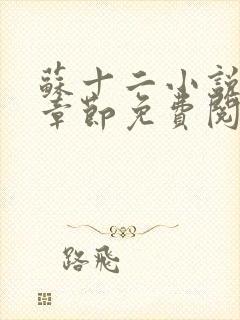 蘇十二小說
章節免費閱
路飛